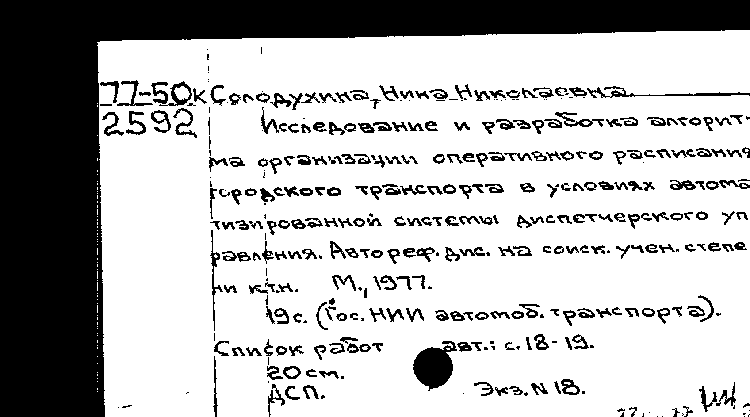 77-50к Солодухина, Нина Николаевна.
2592 Исследование и разработка алгорит-
ма организации оперативного расписания
городского транспорта в условиях автома
тизированной системы диспетчерского уп
равления. Автореф. дис. на соиск. учен. степе
ни к.т.н. М., 1977.
19 с. (Гос. НИИ автомоб. транспорта).
Список работ авт.: с. 18-19.
20 см.
ДСП. Экз. N 18.